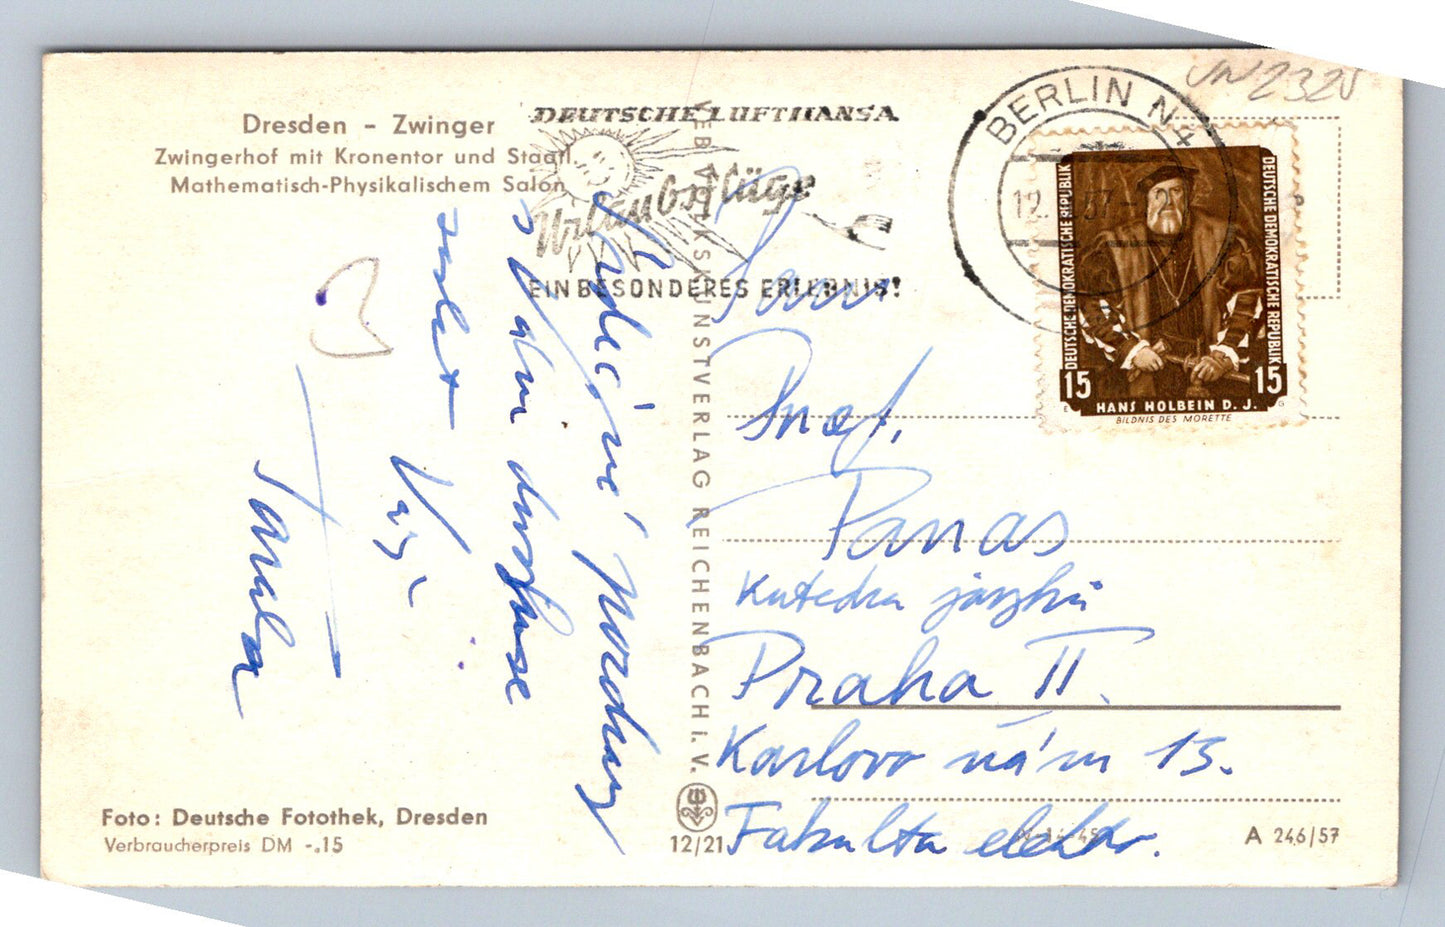 Dresden - Zwinger
Zwingerhof mit Kronentor und Staatl.
Mathematisch-Physikalischem Salon
DEUTSCHE LUFTHANSA
Urlaubsflüge
EIN BESONDERES ERLEBNIS!
BERLIN N4
12. 57
2325
DEUTSCHE DEMOKRATISCHE REPUBLIK
DEUTSCHE DEMOKRATISCHE REPUBLIK
15 15
HANS HOLBEIN D. J.
BILDNIS DES MORETTE
Srdečné pozdravy
Vám
Váš
VEB VOLKSKUNSTVERLAG REICHENBACH i. V.
Pan
Prof.
Panas
Katedra jazyků
Praha II.
Karlovo nám 13.
Fakulta elektro.
Foto: Deutsche Fotothek, Dresden
Verbraucherpreis DM -.15
12/21
A 246/57